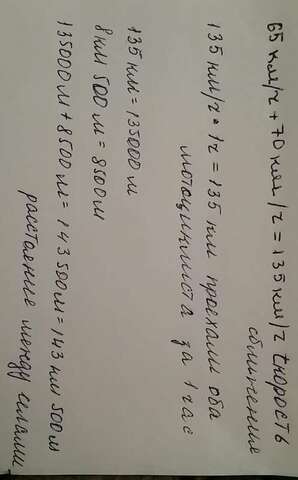 65 км/ч + 70 км/ч = 135 км/ч скорость
сближения
135 км/ч • 1ч = 135 км проехали оба
мотоциклиста за 1 час
135 км = 135000 м
8 км 500 м = 8500 м
135000 м + 8500 м = 143500 м = 143 км 500 м
расстояние между селами